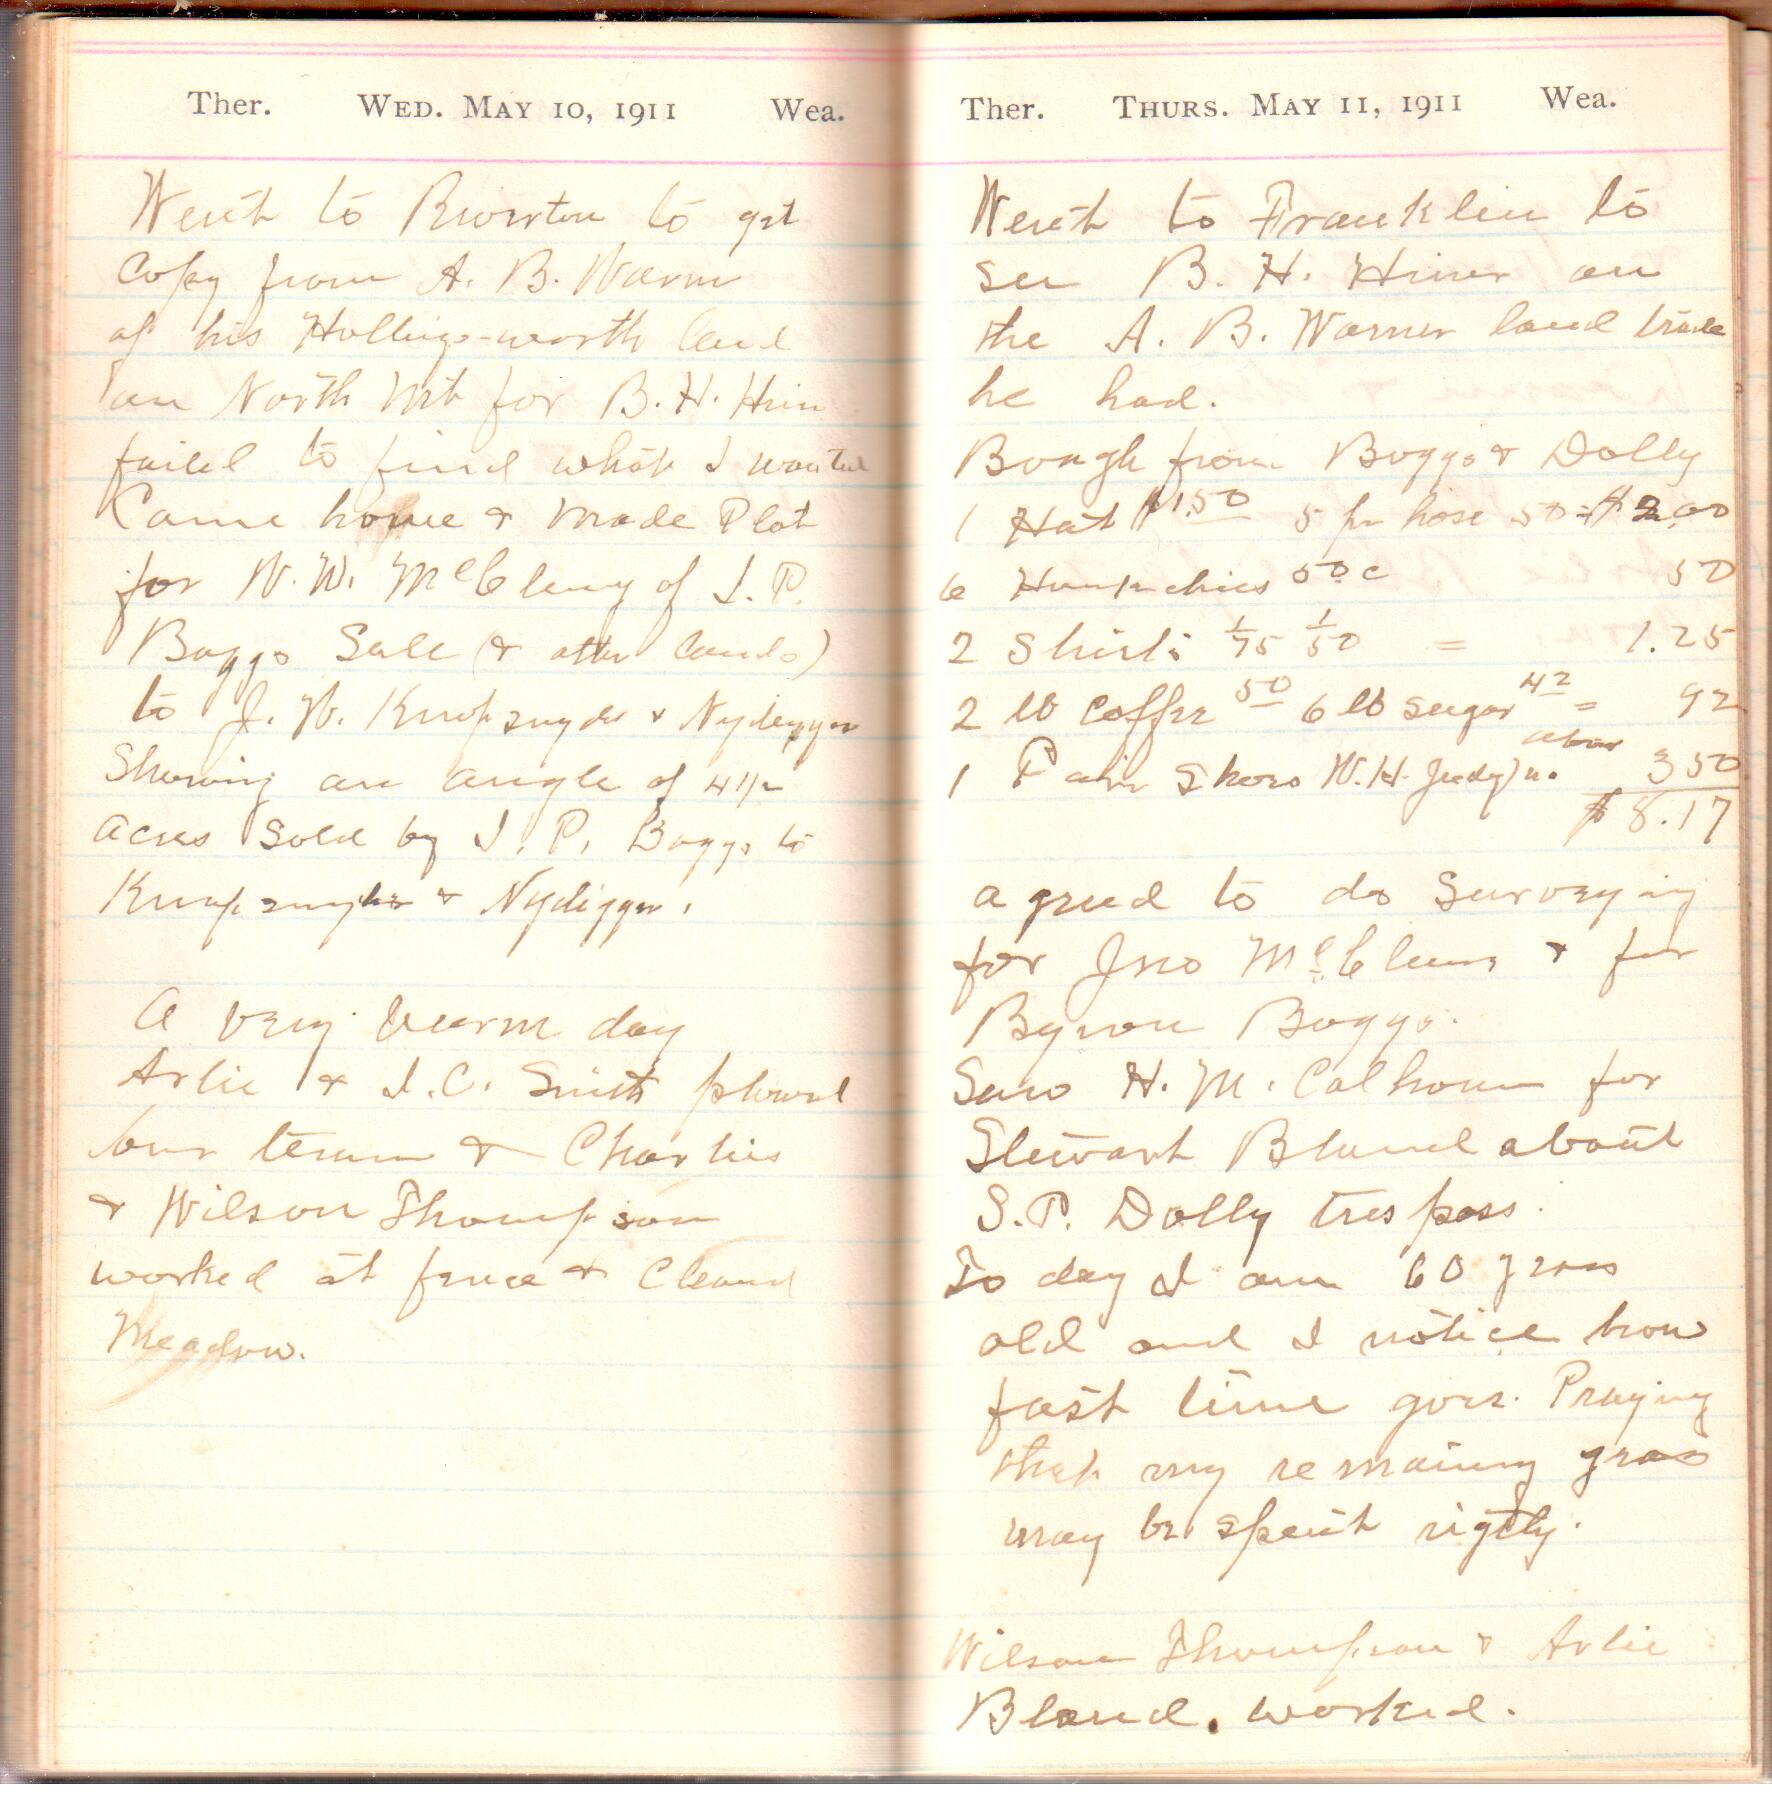 Ther. WED. MAY 10, 1911 Wea.
Went to Riverton to get
Copy from A. B. Warner
of his Hollings-worth land
on North Mt for B. H. Hiner
failed to find what I wanted
Came home & made Plat
for W. W. McClung of I. P.
Boggs Sale (& other lands)
to J. W. & Nydegger
Showing an angle of 4 1/2
acres Sold by I. P. Boggs to
& Nydigger.
A very warm day
Arlie & I. C. Smith plowed
our team & Charlies
& Wilson Thompson
worked at fence & Cleaned
Meadow.
Ther. THURS. MAY 11, 1911 Wea.
Went to Franklin to
see B. H. Hiner on
the A. B. Warner land trade
he had.
Bough from Boggs & Dolly
1 Hat $1.50 5 pr hose 50 = $2.00
6 50 c 50
2 Shirts 1/75 1/50 = 1.25
2 lb Coffee 50 6 lb sugar 42 = 92
1 Pair Shoes W. H. Judy Jr. 350
$8.17
agreed to do Surveying
for Jno McClung & for
Byron Boggs.
Saw H. M. Calhoun for
Stewart Bland about
S. P. Dolly trespass.
To day I am 60 years
old and I notice how
fast time goes. Praying
that my remaining years
may be spent rigtly.
Wilson Thompson & Arlie
Bland. worked.